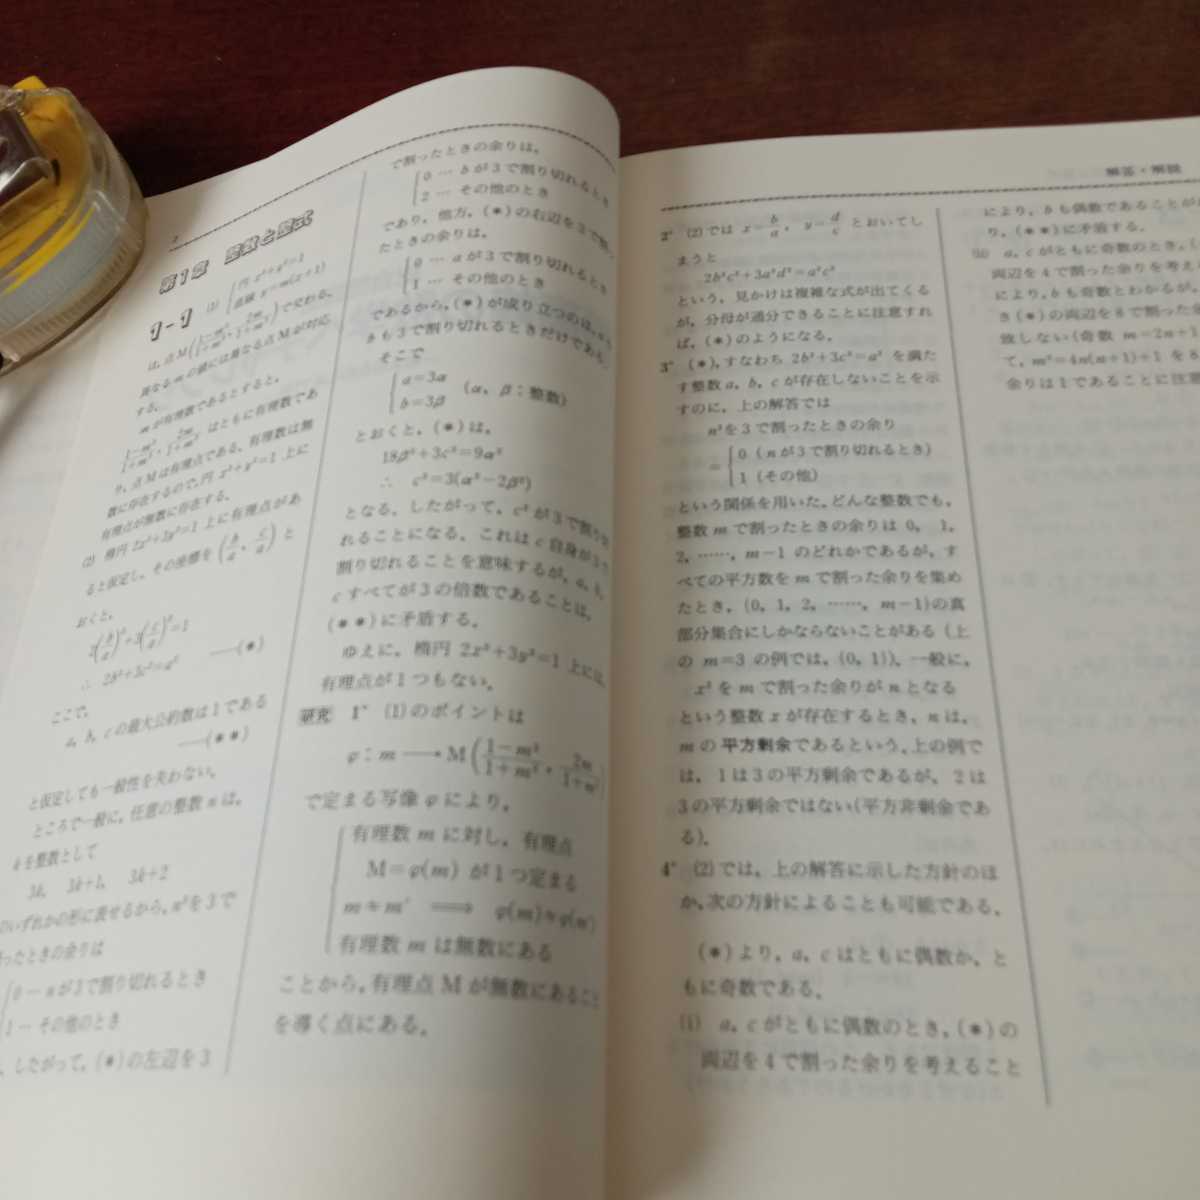 2
第1章 整数と整式
1-1 (1) {円 x²+y²=1
直線 y=m(x+1)
は,点M((1-m²)/(1+m²), 2m/(1+m²))で交わる.
異なるmの値には異なる点Mが対応
する.
mが有理数であるとすると,
(1-m²)/(1+m²), 2m/(1+m²) はともに有理数であ
り,点Mは有理点である.有理数は無
数に存在するので,円 x²+y²=1 上に
有理点が無数に存在する.
(2) 楕円 2x²+3y²=1 上に有理点があ
ると仮定し,その座標を (b/a, c/a) と
おくと,
2(b/a)²+3(c/a)²=1
∴ 2b²+3c²=a² ――(*)
ここで,
a, b, c の最大公約数は1である
――(**)
と仮定しても一般性を失わない.
ところで一般に,任意の整数 n は,
k を整数として
3k, 3k+1, 3k+2
のいずれかの形に表せるから,n²を3で
ったときの余りは
{0 … nが3で割り切れるとき
1 … その他のとき
したがって,(*)の左辺を3
で割ったときの余りは,
{0 … bが3で割り切れるとき
2 … その他のとき
であり,他方,(*)の右辺を3で割っ
たときの余りは,
{0 … aが3で割り切れるとき
1 … その他のとき
であるから,(*)が成り立つのは,
bも3で割り切れるときだけである.
そこで
{a=3α
b=3β (α, β:整数)
とおくと,(*)は,
18β²+3c²=9α²
∴ c²=3(α²-2β²)
となる.したがって,c²が3で割り切
れることになる.これはc自身が3で
割り切れることを意味するが,a, b,
cすべてが3の倍数であることは,
(**)に矛盾する.
ゆえに,楕円 2x²+3y²=1 上には,
有理点が1つもない.
研究 1° (1)のポイントは
φ:m ―→ M((1-m²)/(1+m²), 2m/(1+m²))
で定まる写像 φ により,
{有理数 m に対し,有理点
M=φ(m) が1つ定まる
m≠m′ ⟹ φ(m)≠φ(m′)
有理数 m は無数にある
ことから,有理点 M が無数にあること
を導く点にある.
解答・解説
2° (2)では x=b/a, y=d/c とおいてし
まうと
2b²c²+3a²d²=a²c²
という,見かけは複雑な式が出てくる
が,分母が通分できることに注意すれ
ば,(*)のようになる.
3° (*),すなわち 2b²+3c²=a² を満た
す整数 a, b, c が存在しないことを示
すのに,上の解答では
n²を3で割ったときの余り
={0 (nが3で割り切れるとき)
1 (その他)
という関係を用いた.どんな整数でも,
整数 m で割ったときの余りは 0, 1,
2, ……, m-1 のどれかであるが,す
べての平方数を m で割った余りを集め
たとき,{0, 1, 2, ……, m-1}の真
部分集合にしかならないことがある (上
の m=3 の例では,{0, 1}).一般に,
x²を m で割った余りが n となる
という整数 x が存在するとき,n は,
m の 平方剰余であるという.上の例で
は,1は3の平方剰余であるが,2は
3の平方剰余ではない(平方非剰余であ
る).
4° (2)では,上の解答に示した方針のほ
か,次の方針によることも可能である.
(*)より,a, c はともに偶数か,と
もに奇数である.
(i) a, c がともに偶数のとき,(*)の
両辺を4で割った余りを考えること
により,bも偶数であることが
り,(**)に矛盾する.
(ii) a, c がともに奇数のとき,(
両辺を4で割った余りを考え
により,bも奇数とわかるが,
き(*)の両辺を8で割った余
致しない(奇数 m=2n+1
て,m²=4n(n+1)+1 を8
余りは1であることに注意